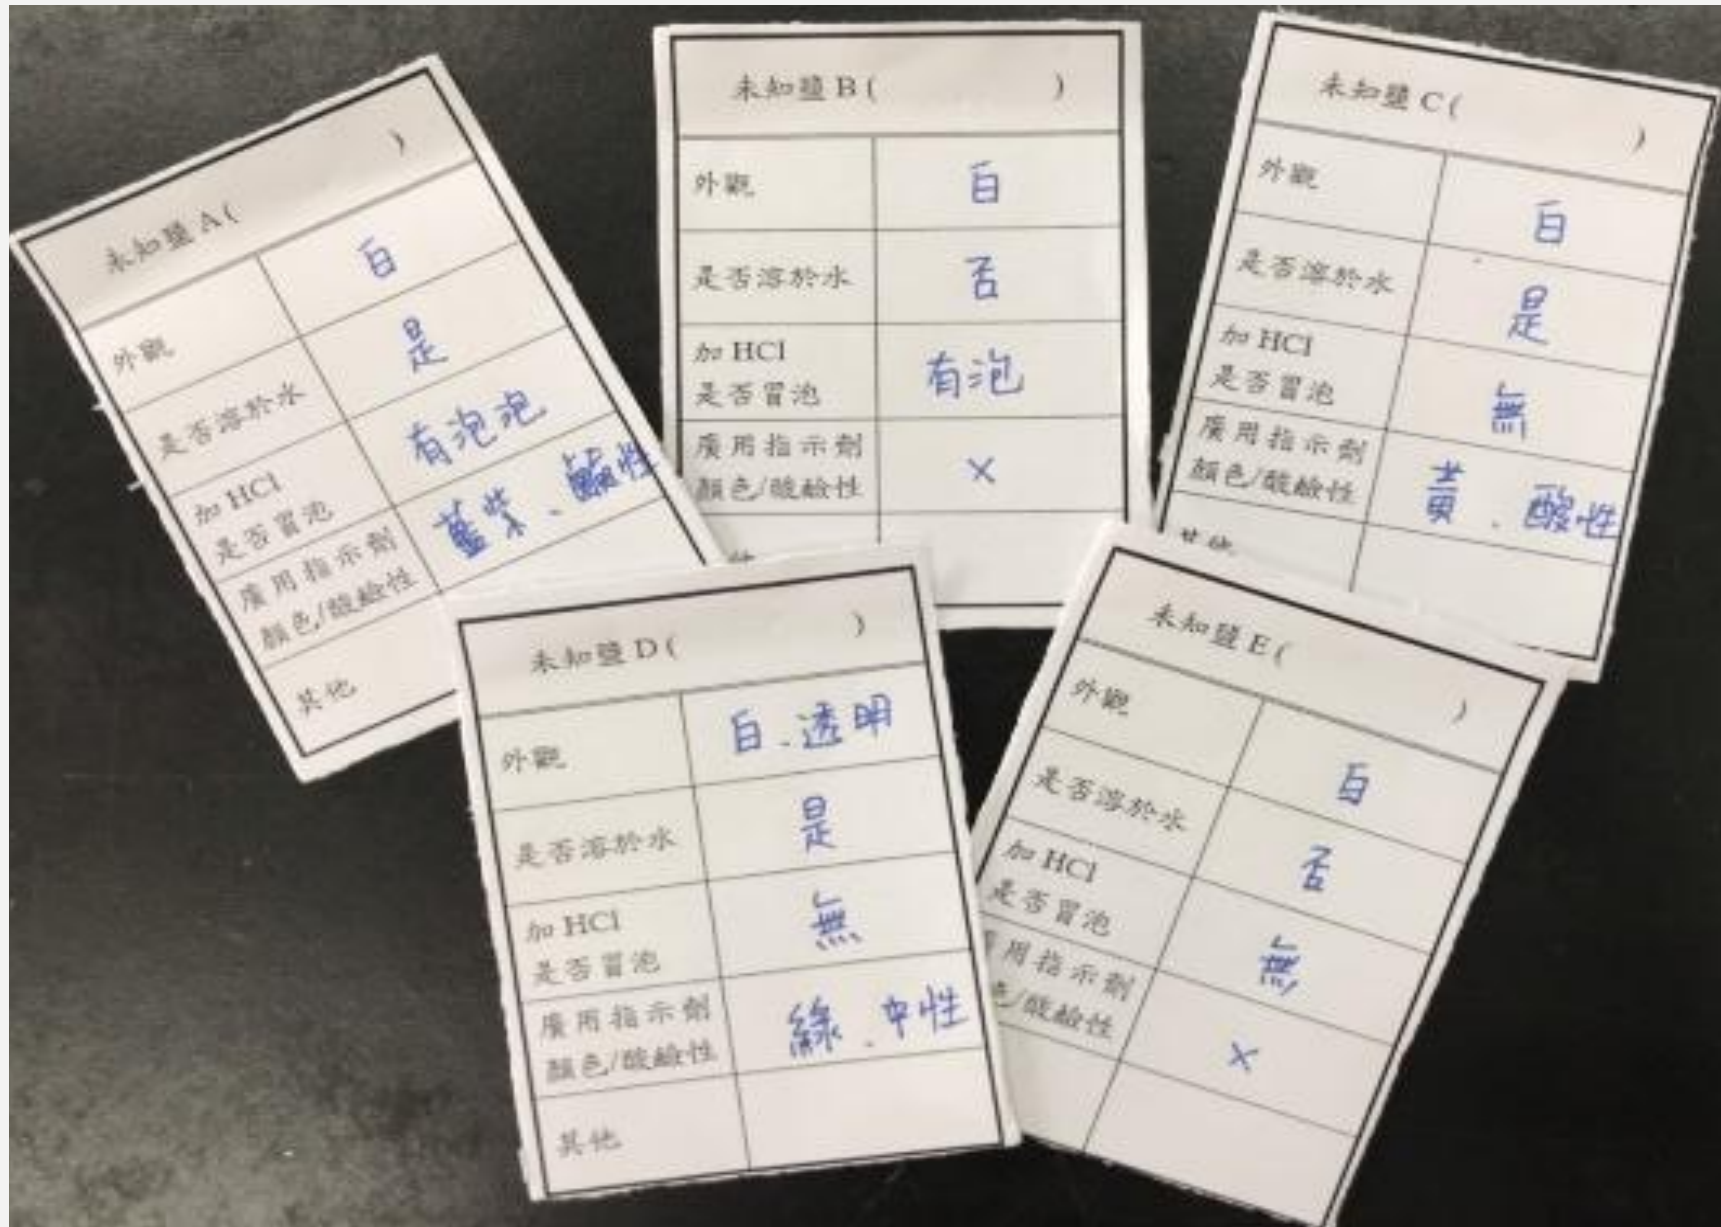 未知鹽 A (                    )
外觀 白
是否溶於水 是
加 HCl
是否冒泡 有泡泡
廣用指示劑
顏色/酸鹼性 藍紫、鹼性
其他
未知鹽 B (                    )
外觀 白
是否溶於水 否
加 HCl
是否冒泡 有泡
廣用指示劑
顏色/酸鹼性 ×
未知鹽 C (                    )
外觀 白
是否溶於水 是
加 HCl
是否冒泡 無
廣用指示劑
顏色/酸鹼性 黃、酸性
其他
未知鹽 D (                    )
外觀 白、透明
是否溶於水 是
加 HCl
是否冒泡 無
廣用指示劑
顏色/酸鹼性 綠、中性
其他
未知鹽 E (                    )
外觀 白
是否溶於水 否
加 HCl
是否冒泡 無
用指示劑
色/酸鹼性 ×